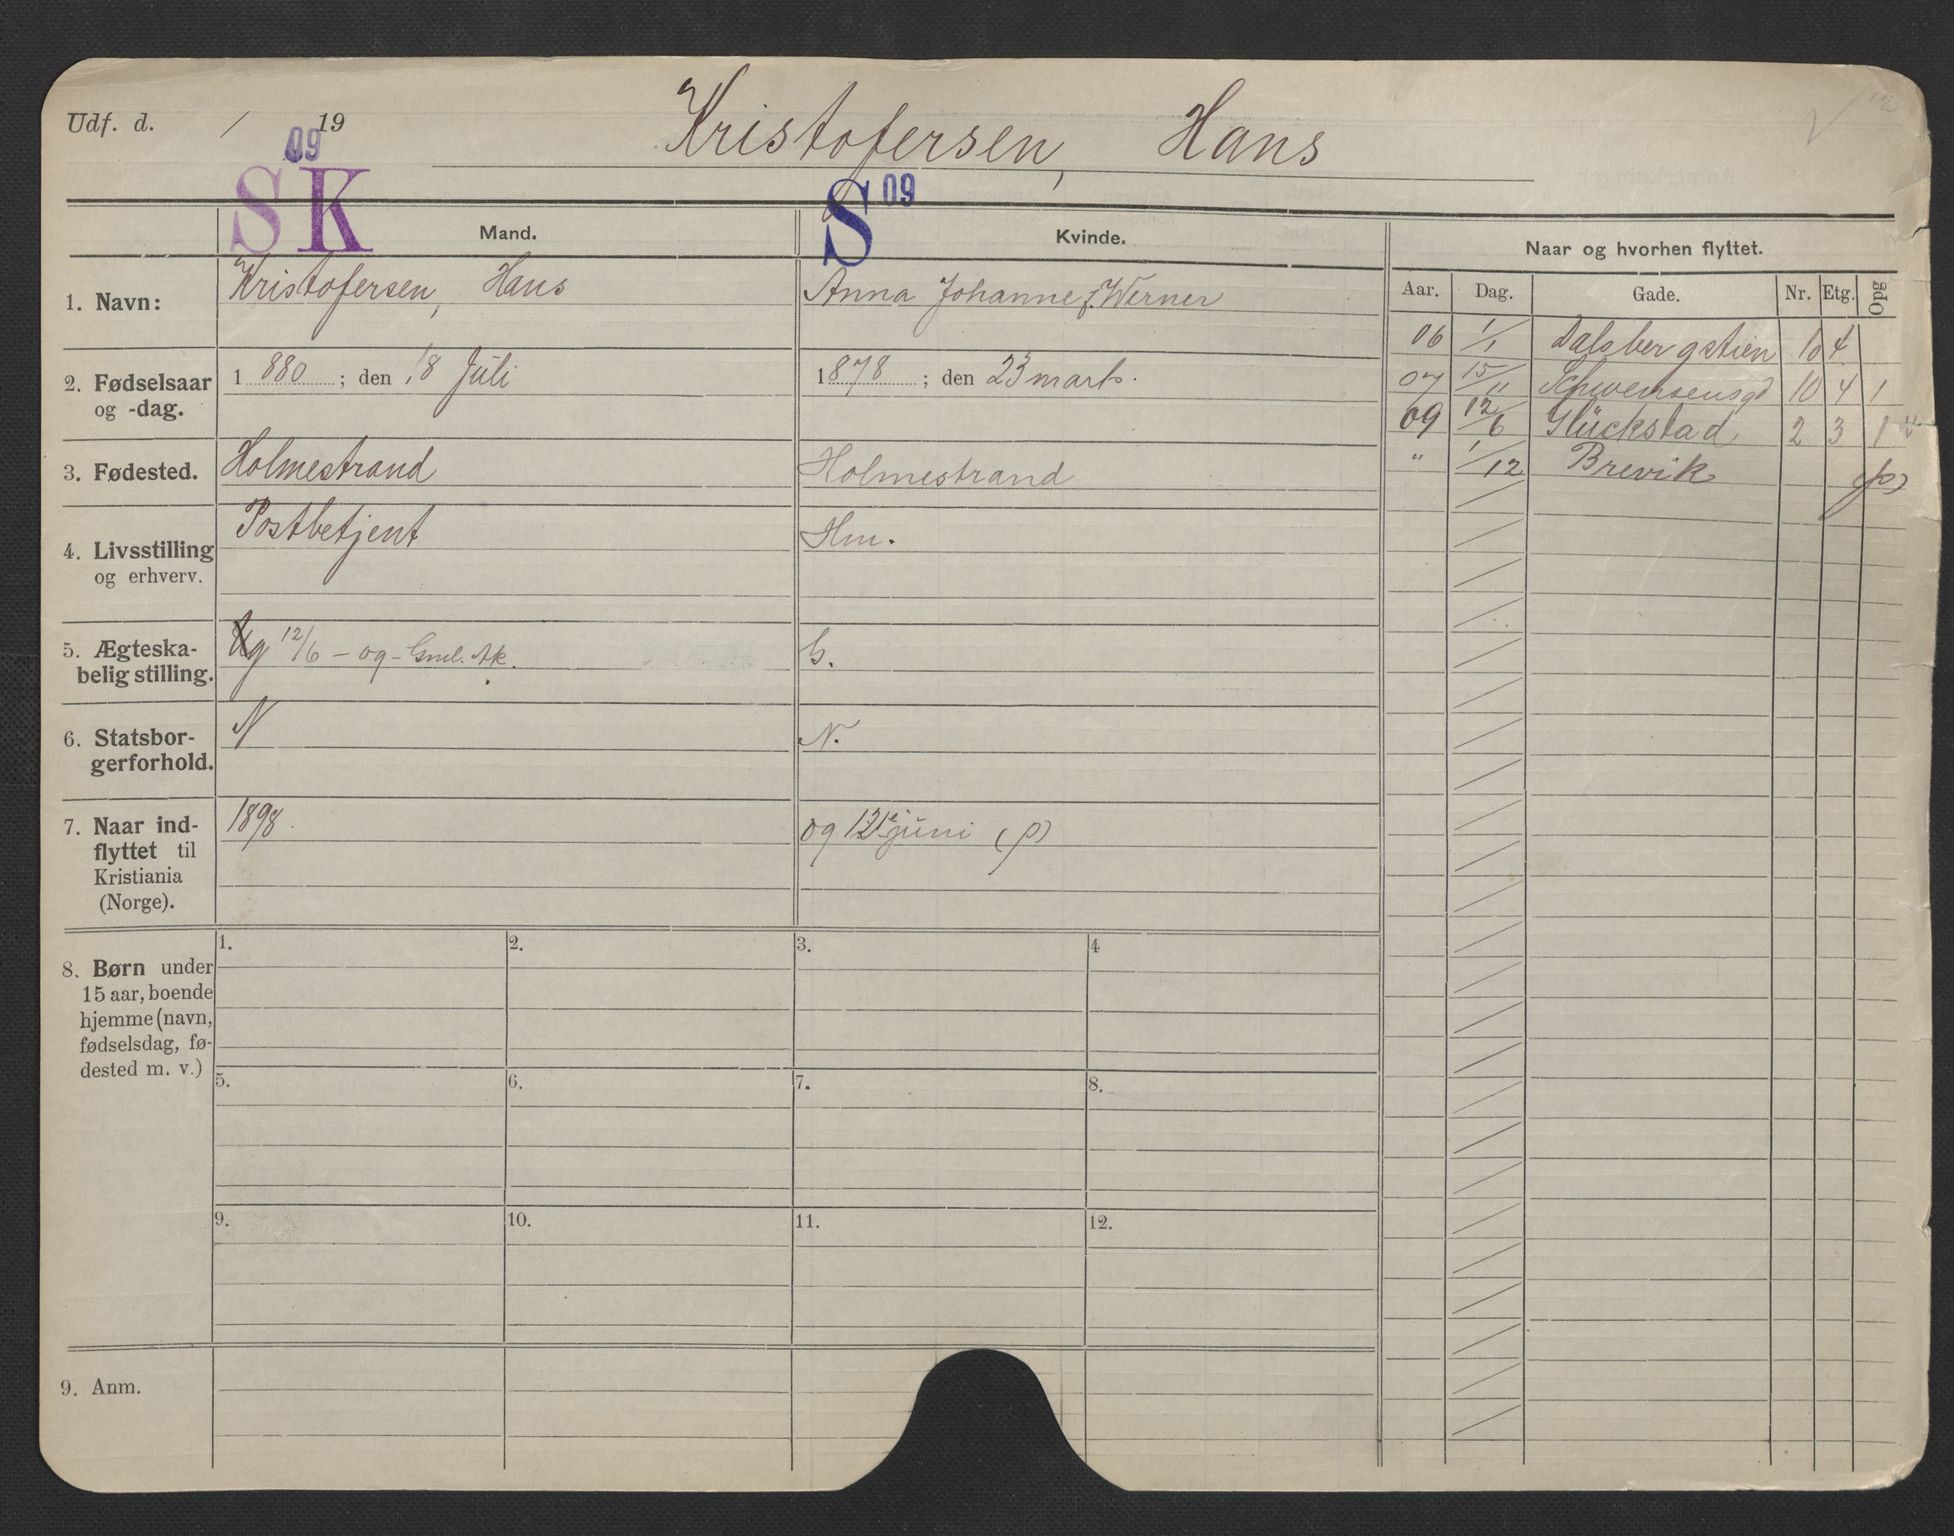 Udf. d. / 19
Kristofersen, Hans
09
SK
S 09
Mand.
Kvinde.
Naar og hvorhen flyttet.
Aar. Dag. Gade. Nr. Etg. Opg
1. Navn:
Kristofersen, Hans
Anna Johanne f. Werner
2. Fødselsaar
og -dag.
1880; den 18 Juli
1878; den 23 marts.
3. Fødested.
Holmestrand
Holmestrand
4. Livsstilling
og erhverv.
Postbetjent
Hm.
5. Ægteska-
belig stilling.
Ug 12/6 - 09 - Gml. Ak.
G.
6. Statsbor-
gerforhold.
N
N.
7. Naar ind-
flyttet til
Kristiania
(Norge).
1898.
09 12 juni (p)
06 1/1 Dalsbergstien 10 4
07 15/11 Schwensensgd 10 4 1
09 12/6 Glückstad 2 3 1
" 1/12 Brevik (p)
8. Børn under
15 aar, boende
hjemme (navn,
fødselsdag, fø-
dested m. v.)
1. 2. 3. 4
5. 6. 7. 8.
9. 10. 11. 12.
9. Anm.